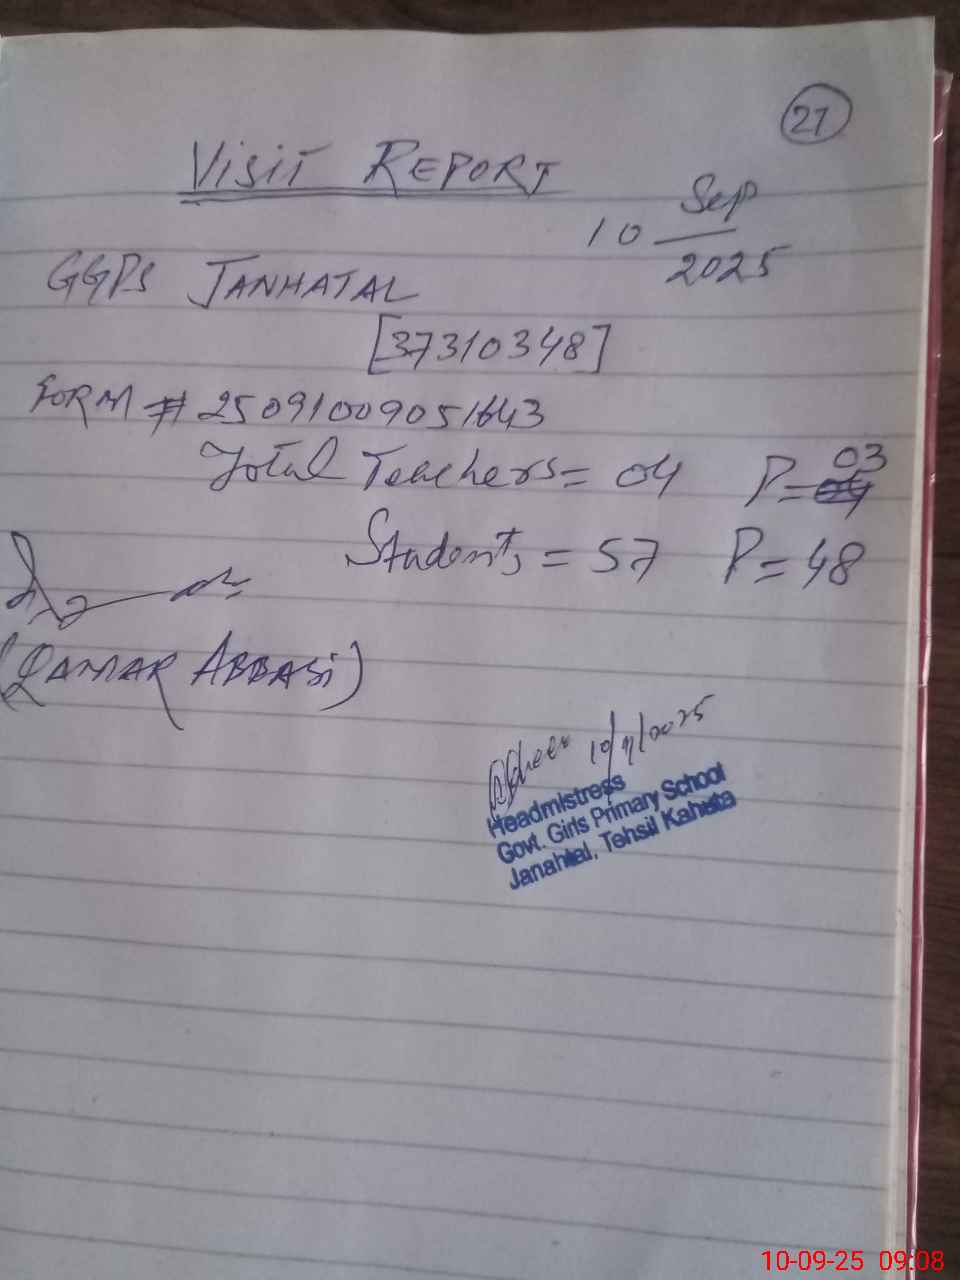 21
VISIT REPORT
10 Sep
2025
GGPS JANHATAL
[37310348]
FORM # 25091009051643
Total Teachers = 04 P = 03
Students = 57 P = 48
(QAMAR ABBASI)
Headmistress
Govt. Girls Primary School
Janahtal, Tehsil Kahuta
10-09-25 09:08